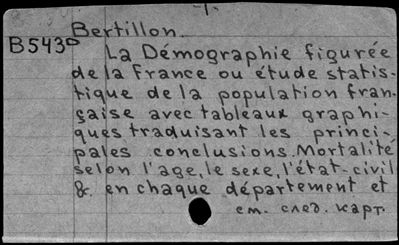 -1.
Bertillon.
B543°
La Démographie figurée
de la France ou étude statis-
tique de la population fran-
çaise avec tableaux graphi-
ques traduisant les princi-
pales conclusions. Mortalité
selon l'age, le sexe, l'état-civil
&. en chaque département et
см. след. карт.